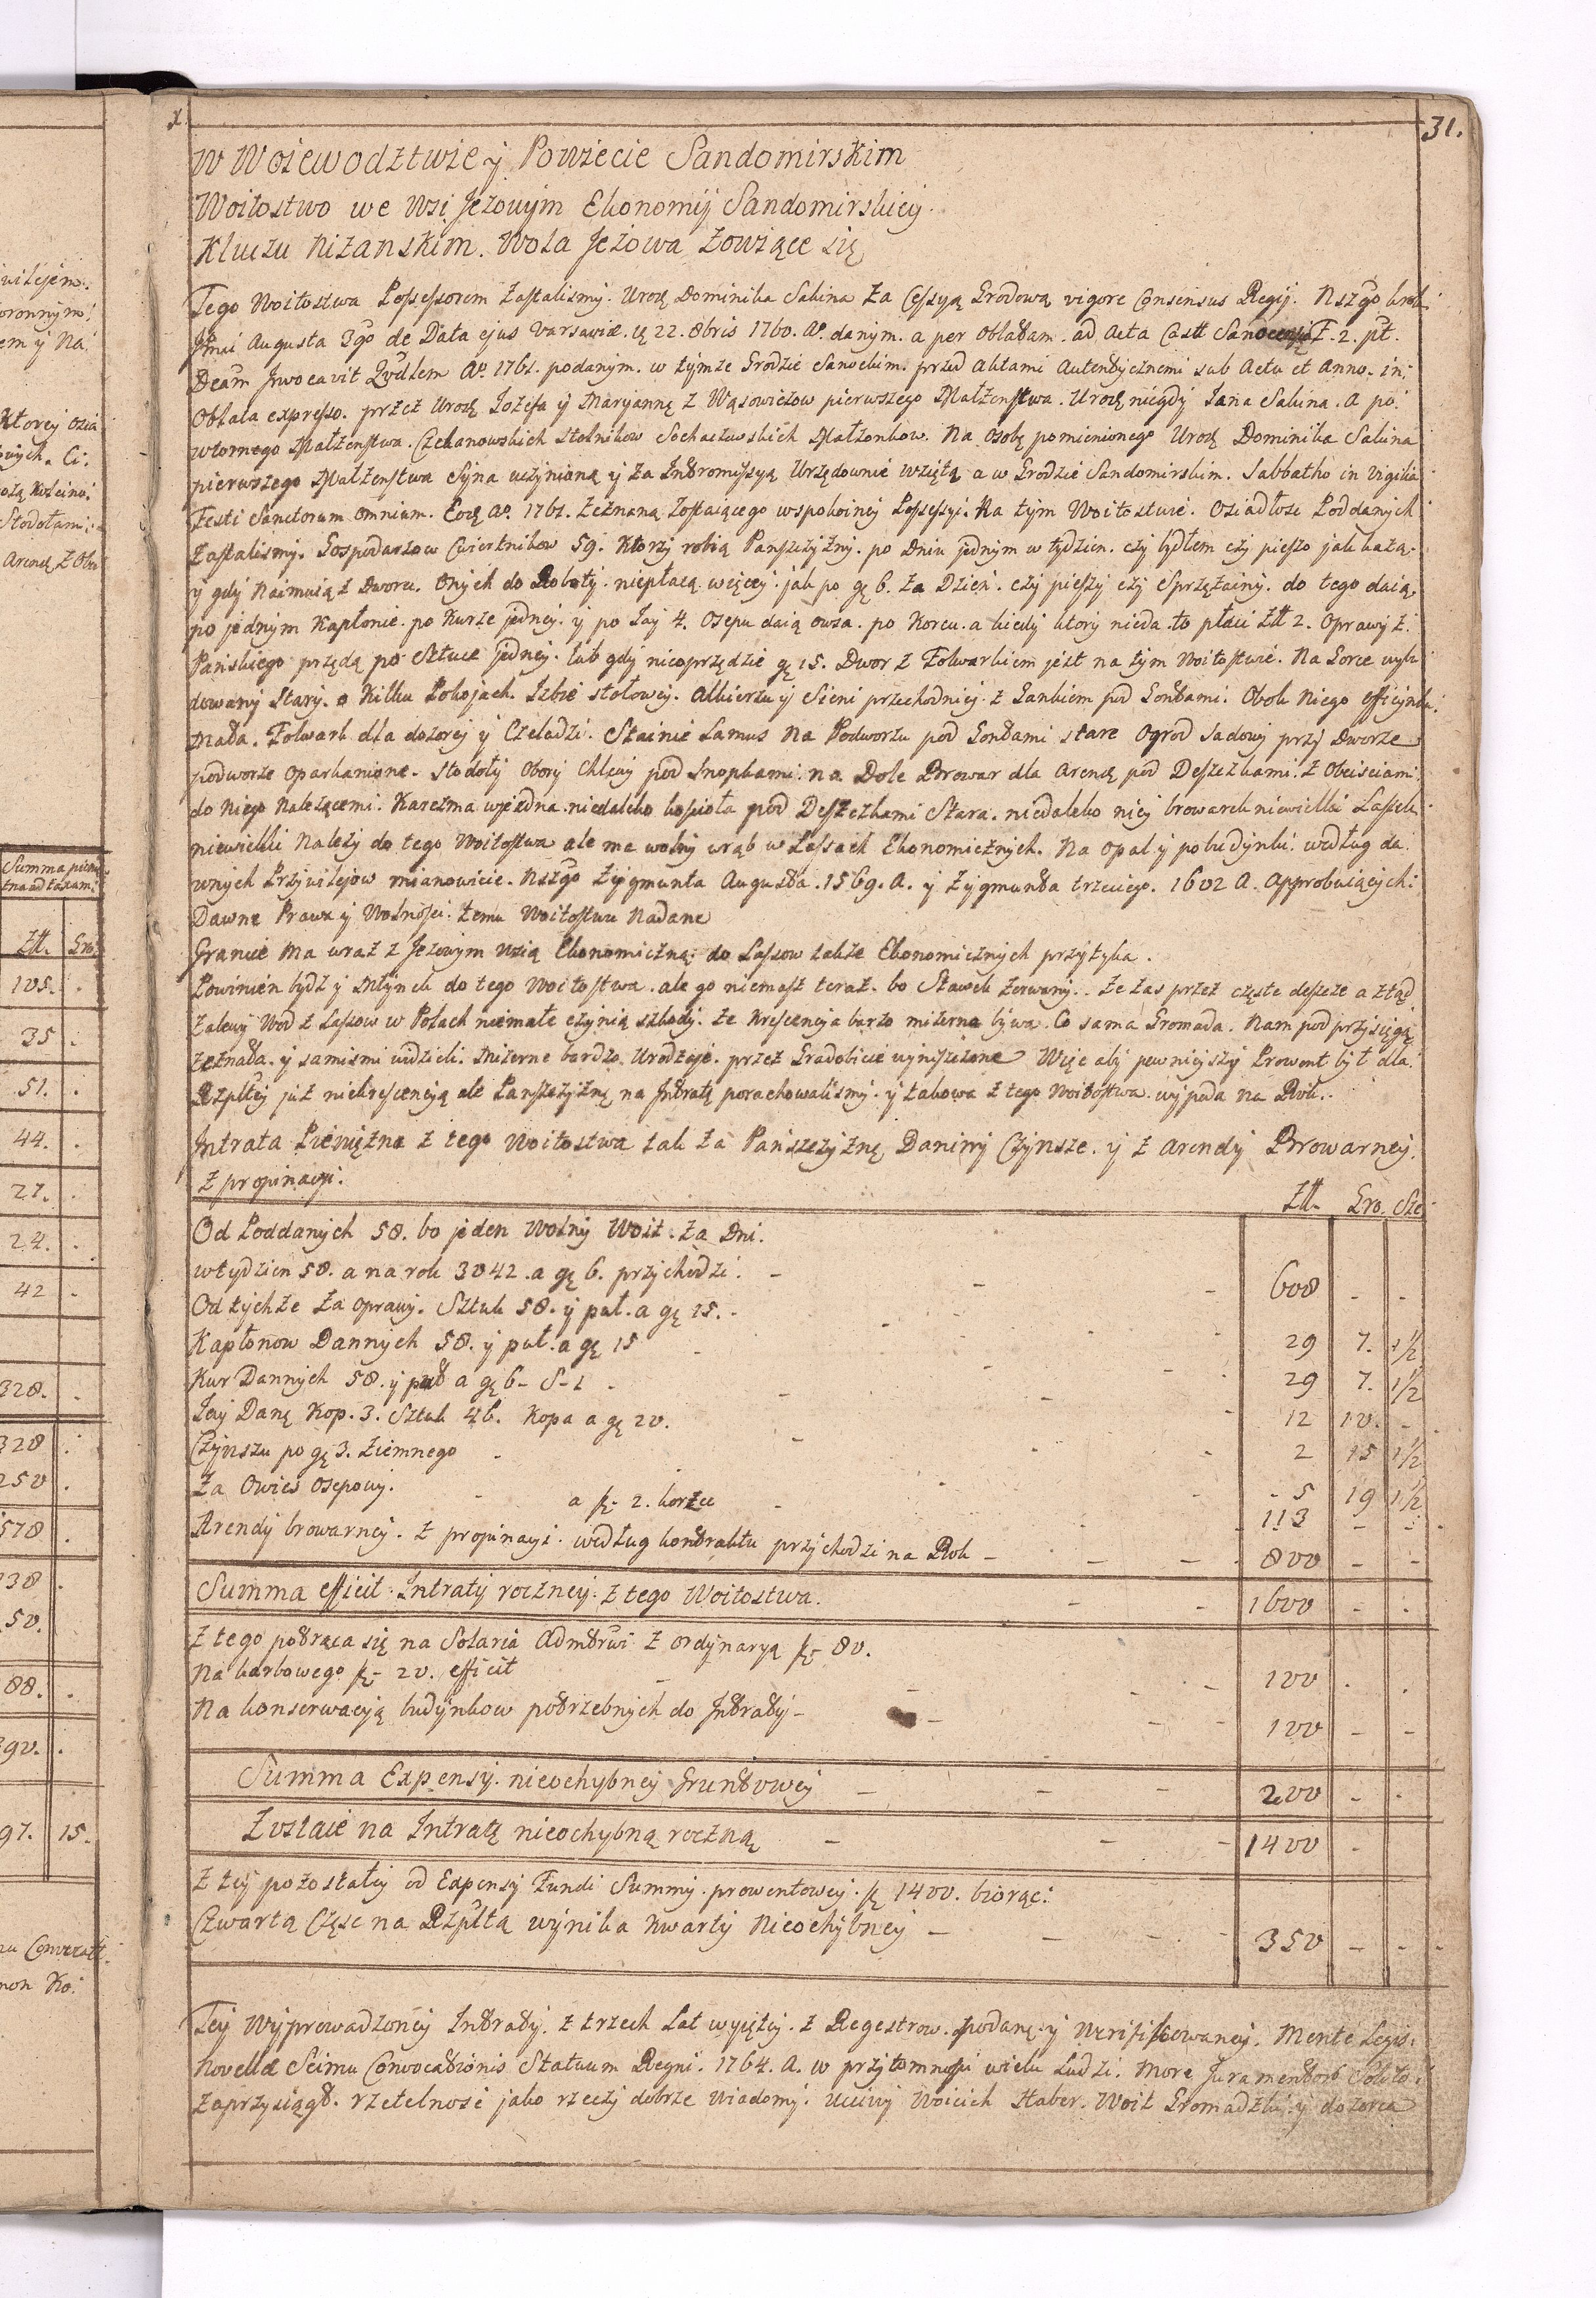 31.
W Wojewodztwie y Powiecie Sandomirskim
Woitostwo we Wsi Jeżowym Ekonomij Sandomirskiey.
Kluczu Niżanskim. Wola Jeżowa Zowiące się
Tego Woitostwa Possessorem Zastalismy. Urodz. Dominika Sabina Za Cessyą Grodową vigore Consensus Regij. Nszgo krola
Jmci Augusta 3go de Data ejus Varsaviæ. 22. 8bris 1760. Ao. danym. a per Oblatam. ad Acta Castr Sanocensia F. 2. pt.
Dcam Invocavit Qudlem Ao. 1761. podanym. w tymże Grodzie Sanockim. przed Aktami Autentycznemi sub Actu et Anno. in.
Oblata expresso. przez Urodz Jozefa y Maryannę z Wąsowiczow pierwszego Małżenstwa. Urodz niegdy Jana Sabina. a po
wtornego Małżenstwa. Czekanowskich Stolnikow Sochaczewskich Małżonkow. Na osobę pomienionego Urodz Dominika Sabina
pierwszego Małżenstwa Syna uczynioną y Za Intromissyą Urzędownie wziętą a w Grodzie Sandomirskim. Sabbatho in Vigilia
Festi Sanctorum Omnium. Ao. 1761. Zeznaną Zostaiącego wspokoiney Possessyi. Na tym Woitostwie. Osiadłosc Poddanych
Zastalismy. Gospodarzow Cwiertnikow 59. Ktorzy robią Panszczyzny. po Dniu jednym w tydzien. czy bydłem czy pieszo jak każą.
y gdy Naimuią z Dworu. Onych do Roboty. niepłacą więcey. jak po gr 6. Za Dzień. czy pieszy czy Sprzężainy. do tego daią.
po jednym Kapłonie. po Kurze jedney. y po Jay 4. Osepu daią owsa. po Korcu. a kiedy ktory nieda. to płaci Złł 2. Oprawy z.
Pańskiego przędą po Sztuce jedney. lub gdy nieoprzędzie gr 15. Dwor z Folwarkiem jest na tym Woitostwie. Na Gorce wybu
dowany Stary. o Kilku Pokojach. Izbie stołowey. Alkierzu y Sieni przechodniey. z Gankiem pod Gontami. Obok Niego Officynka
Mała. Folwark dla dozorcy y Czeladzi. Stainie Lamus Na Podworzu pod Gontami stare Ogrod Sadowy przy Dworze
podworze Oparkanione. Stodoły Obory Chlewy pod Snopkami. na Dole Browar dla Arendz pod Deszczkami. z Obeisciami
do Niego Należącemi. Karczma wjezdna niedaleko kosciola pod Deszczkami Stara. niedaleko niey browarek niewielki Lassek
niewielki Należy do tego Woitostwa ale ma wolny wrąb w Lassach Ekonomicznych. Na opał y po budynki. według da.
wnych Przywilejow mianowicie. Nszgo Zygmunta Augusta. 1569. A. y Zygmunta trzeciego. 1602 A. Approbuiących.
Dawne Prawa y Wolnosci. temu Woitostwu Nadane
Granice Ma wraz z Jeżowym Wsią Ekonomiczną. do Lassow także Ekonomicznych przytyka.
Powinien bydz y Młynek do tego Woitostwa. ale go niemasz teraz. bo Stawek Zerwany. Że zas przez częste deszcze a ztąd
Zalewy Wod z Lassow w Polach niemałe czynią szkody. że Krescencyia barzo mizerna bywa. Co sama Gromada. Nam pod przysięgą
zeznała. y samismi widzieli. Mizerne bardzo Urodzaje. przez Gradobicie wyniszczone Więc aby pewnieyszy Prowent był dla
Rzpltey już niekrescencyą ale Panszczyznę na Intratę porachowalismy. y takowa z tego Woitostwa. wypada na Rok.
Intrata Pieniężna z tego Woitostwa tak za Pańszczyznę Daniny Czynsze. y z arendy Browarney.
z propinacyi.
Złł. Gro. Sze
Od Poddanych 58. bo jeden Wolny Woit. Za Dni.
wtydzien 58. a na rok 3042. a gr 6. przychodzi. - 608 - -
Od tychże Za Oprawy. Sztuk 58. y puł. a gr 15. - 29 7. 1½
Kapłonow Dannych 58. y puł. a gr 15 29 7. 1½
Kur Dannych 58. y puł a gr 6 - S - 1 - 12 10. -
Jay Dan Kop. 3. Sztuk 46. Kopa a gr 20. 2 15 1½
Czynszu po gr 3. Ziemnego - 5 19 1½
Za Owies Osepowy. a fl. 2. korzec 113 - -
Arendy browarney. z propinacyi. według kontraktu przychodzi na Rok - 800 - -
Summa efficit. Intraty roczney. z tego Woitostwa. 1600 - .
Z tego potrąca się na Solaria Admstrwi z ordynaryą fl. 80.
Na karbowego fl. 20. efficit 100 . .
Na konserwacyą budynkow potrzebnych do Intraty - 100 - -
Summa Expensy. nieochybney Gruntowey - 200 - .
Zostaie na Intratę nieochybną roczną - 1400 .
Z tey pozostałey od Expensy Fundi Summy. prowentowey. fl 1400. biorąc.
Czwartą Częsc na Rzpltą wynika Kwarty Nieochybney - 350 - - -
Tey Wyprowadzoney Intraty. z trzech Lat wyciętey. z Regestrow. podaney. y Weryfikowaney. Mente Legis.
Novellæ Seimu Convocationis Statuum Regni. 1764. A. w przytomnosci wielu Ludzi. More Juramentor Solito.
Zaprzysiągł. rzetelnosc jako rzeczy dobrze Wiadomy. Uczciwy Woicich Haber. Woit Gromadzki y dozorca
Summa pieni
Złł. Gro.
105. .
35 .
51. .
44. .
21. .
24. .
42 -
328. .
328 .
250 .
578 .
50.
88. .
97. 15.